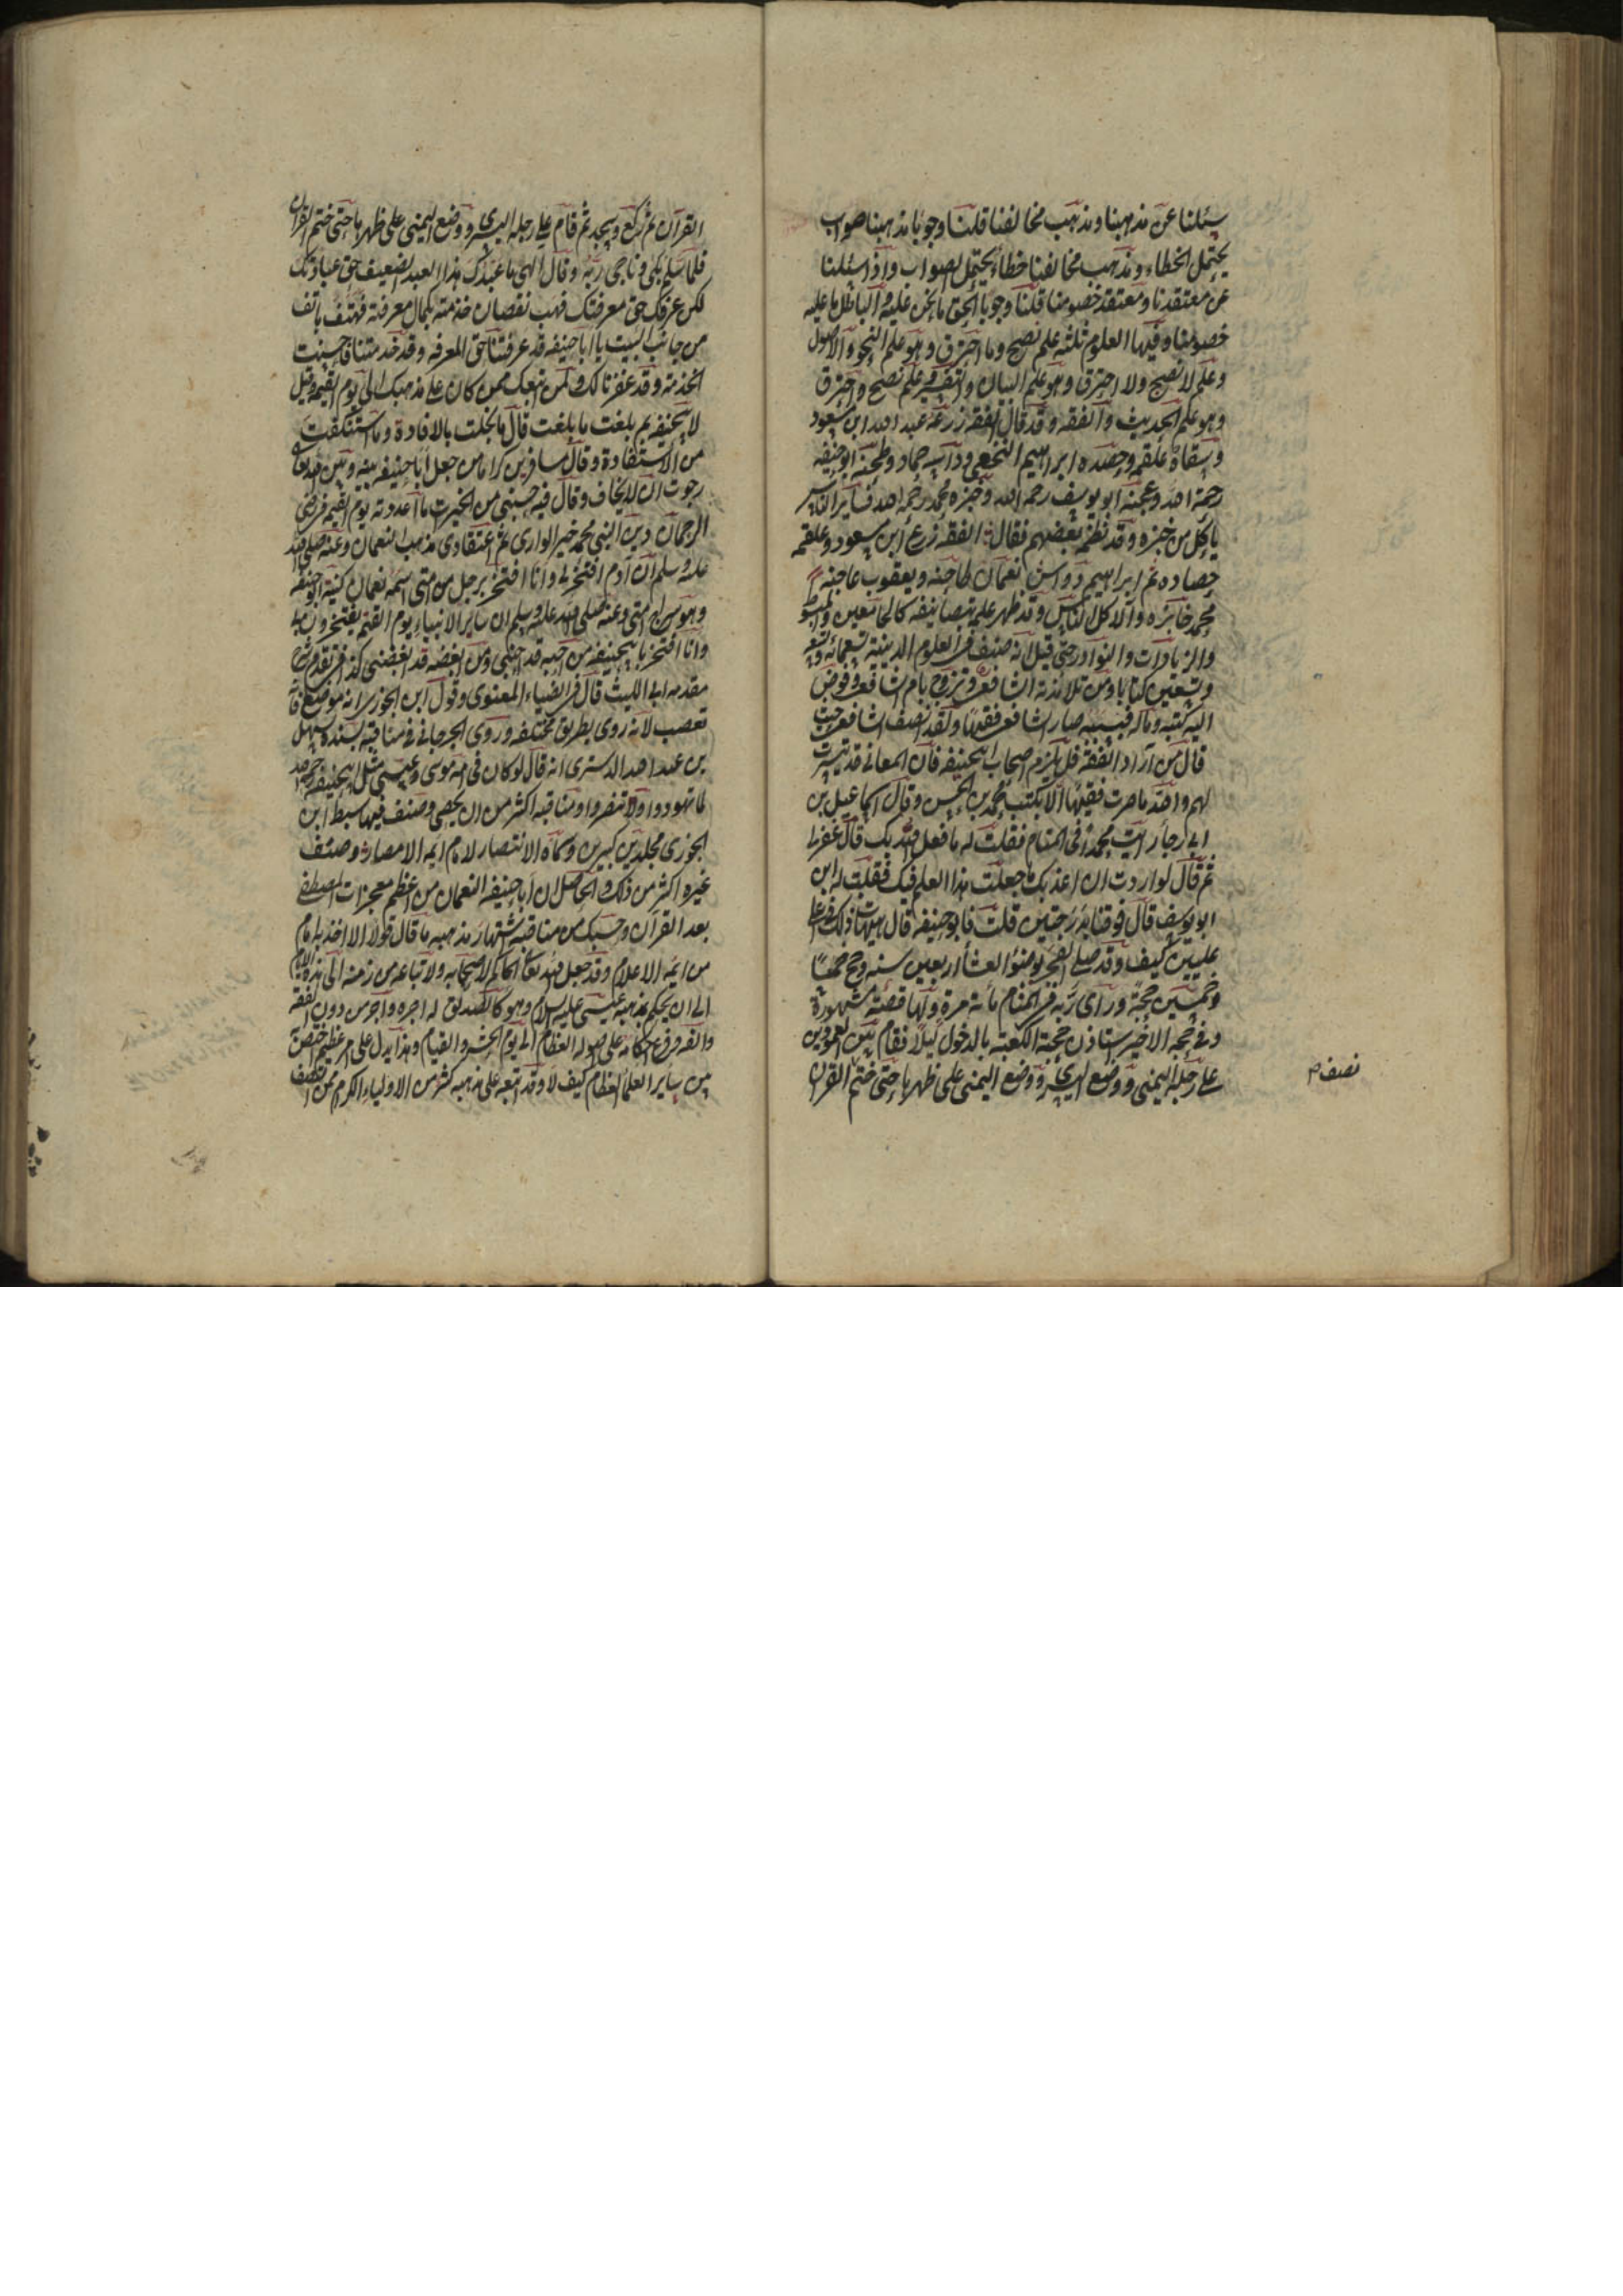 سئلنا عن مذهبنا ومذهب مخالفنا قلنا وجوبا مذهبنا صواب
يحتمل الخطاء ومذهب مخالفنا خطأ يحتمل الصواب واذا سئلنا
عن معتقدنا ومعتقد خصومنا قلنا وجوبا الحق ما نحن عليه والباطل ما عليه
خصومنا وفيها العلوم ثلثه علم نضج وما احترق وهو علم النحو والاصول
وعلم لا نضج ولا احترق وهو علم البيان والتفسير وعلم نضج واحترق
وهو علم الحديث والفقه وقد قال الفقه زرعه عبد الله ابن مسعود
وسقاه علقمه وحصده ابراهيم النخعي وداسه حماد وطحنه ابو حنيفه
رحمة الله وعجنه ابو يوسف رحمه الله وخبزه محمد رحمه الله فساير الناس
ياكل من خبزه وقد نظم بعضهم فقال الفقه زرع ابن مسعود وعلقمه
حصاده ثم ابراهيم دواس نعمان طاحنه ويعقوب عاجنه
محمد خابزه والاكل الناس وقد ظهر علمه بتصانيفه كالجامعين والمبسوط
والزيادات والنوادر حتى قيل انه صنف في العلوم الدينية تسعمائه وتسعه
وتسعين كتابا ومن تلامذته الشافعي وتزوج بام الشافعي وفوض
اليه كتبه وماله فبسببه صار الشافعي فقيها ولقد انصف الشافعي حيث
قال من اراد الفقه فليلزم اصحاب ابيحنيفه فان المعاني قد تيسرت
لهم والله ما صرت فقيها الا بكتب محمد بن الحسن وقال اسماعيل بن
ابي رجا رايت محمدا في المنام فقلت له ما فعل الله بك قال غفر لي
ثم قال لو اردت ان اعذبك ما جعلت هذا العلم فيك فقلت له اين
ابو يوسف قال فوقنا بدرجتين قلت فابو حنيفه قال هيهات ذاك في اعلى
عليين كيف وقد صلى الفجر بوضوء العشأ اربعين سنه وحج خمسًا
وخمسين حجة وراى ربه في المنام مأته مرة ولها قصة مشهورة
وفي حجه الاخير استاذن حجبة الكعبة بالدخول ليلا فقام بين العمودين
على رجله اليمنى ووضع اليسرى ووضع اليمنى على ظهرها حتى ختم القران
نصف م
القرآن ثم ركع وسجد ثم قام على رجله اليسرى ووضع اليمنى على ظهرها حتى ختم القران
فلما سلم بكى وناجى ربه وقال الهي ما عبدك هذا العبد الضعيف حق عبادتك
لكن عرفك حق معرفتك فهب نقصان خدمته بكمال معرفته فهتف هاتف
من جانب البيت يا ابا حنيفه قد عرفتنا حق المعرفه وقد خدمتنا فاحسنت
الخدمة وقد غفرنا لك ولمن تبعك ممن كان على مذهبك الى يوم القيمه وقيل
لابيحنيفه بم بلغت ما بلغت قال ما بخلت بالافادة وما استنكفت
من الاستفادة وقال مسافر بن كرام من جعل ابا حنيفه بينه وبين الله تعالى
رجوت ان لا يخاف وقال فيه حسبي من الخيرات ما اعددته يوم القيمه في رضى
الرحمان دين النبي محمد خير الوارى ثم اعتقادى مذهب النعمان وعنه صلى الله
عليه وسلم ان آدم افتخر بي وانا افتخر برجل من امتى اسمه نعمان كنيته ابو حنيفه
وهو سراج امتى وعنه صلى الله عليه وسلم ان ساير الانبياء يوم القيمه يفتخرون بي
وانا افتخر بابيحنيفه من احبه فقد احبني ومن ابغضه فقد ابغضني كذا في تقدمه شرح
مقدمه ابي الليث قال في الضياء المعنوى وقول ابن الجوزى انه موضوع
تعصب لانه روى بطريق مختلفه وروى الجرجاني في مناقبه بسنده لسهل
بن عبد الله الدسترى انه قال لو كان في امه موسى وعيسى مثل ابيحنيفه رحمه الله
لما تهودوا ولا تنصروا ومناقبه اكثر من ان يحصى وصنف فيها سبط ابن
الجوزى مجلدين كبيرين وسماه الانتصار لامام ايمه الامصار وصنف
غيره اكثر من ذلك والحاصل ان ابا حنيفه النعمان من اعظم معجزات المصطفى
بعد القرآن وحسبك من مناقبه اشتهار مذهبه ما قال قولا الا اخذ به امام
من ايمه الاعلام وقد جعل الله تعالى الحاكم لاصحابه ولاتباعه من زمنه الى هذه الايام
الى ان يحكم بمذهبه عيسى عليه السلام وهو كالصديق له اجره واجر من دون الفقه
والفه وفرع احكامه على اصوله العظام الى يوم الحشر والقيام وهذا يدل على امر عظيم اختص
من ساير العلمأ العظام كيف لا وقد اتبعه على مذهبه كثير من الاولياء الكرام ممن اتصف